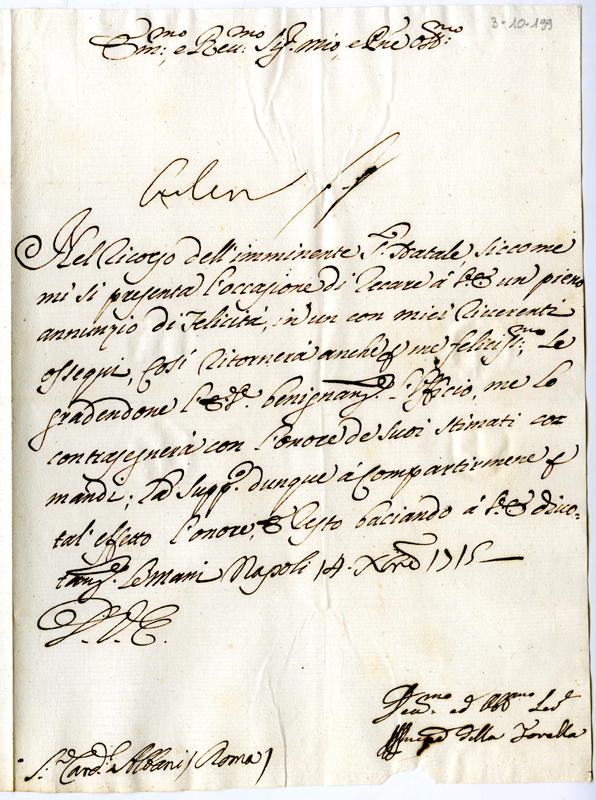 3-10-199
Em:mo e Reu:mo Sig.r mio, e Pne oss:mo
Nel ricorso dell'imminente S. Natale, siccome
mi si presenta l'occasione di recare á V.E. un pieno
annunzio di felicità, in un con miei riverenti
ossequi, Così ritornerà anche p me feliciss:mo, Se
gradendone l'E.V. benignam.te l'Officio, me lo
contrasegnerà con l'onore de suoi stimati co=
mandi; La supp.o dunque á compartirmene p
tal'effetto l'onore, e resto baciando á V.E. divo=
tam.te le mani Napoli 14. Xbre 1715
D. V. E.
Deu:mo ed Obb:mo Ser.e
della Torella
S.r Card.le Albani (Roma)